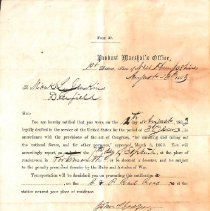 Form 39.
Provost Marshal's Office,
District, State of New Hampshire
August 1863
To
Deerfield
SIR:
You are hereby notified that you were, on the day of August, 1863,
legally drafted in the service of the United States for the period of 3 years, in
accordance with the provisions of the act of Congress, "for enrolling and calling out
the national forces, and for other purposes," approved March 3, 1863. You will
accordingly report, on the of Sept, at the place of
rendezvous, in Portsmouth, N.H., or be deemed a deserter, and be subject to the
penalty prescribed therefor by the Rules and Articles of War.
Transportation will be furnished you on presenting this notification at
on the Rail Road, or at the
station nearest your place of residence.